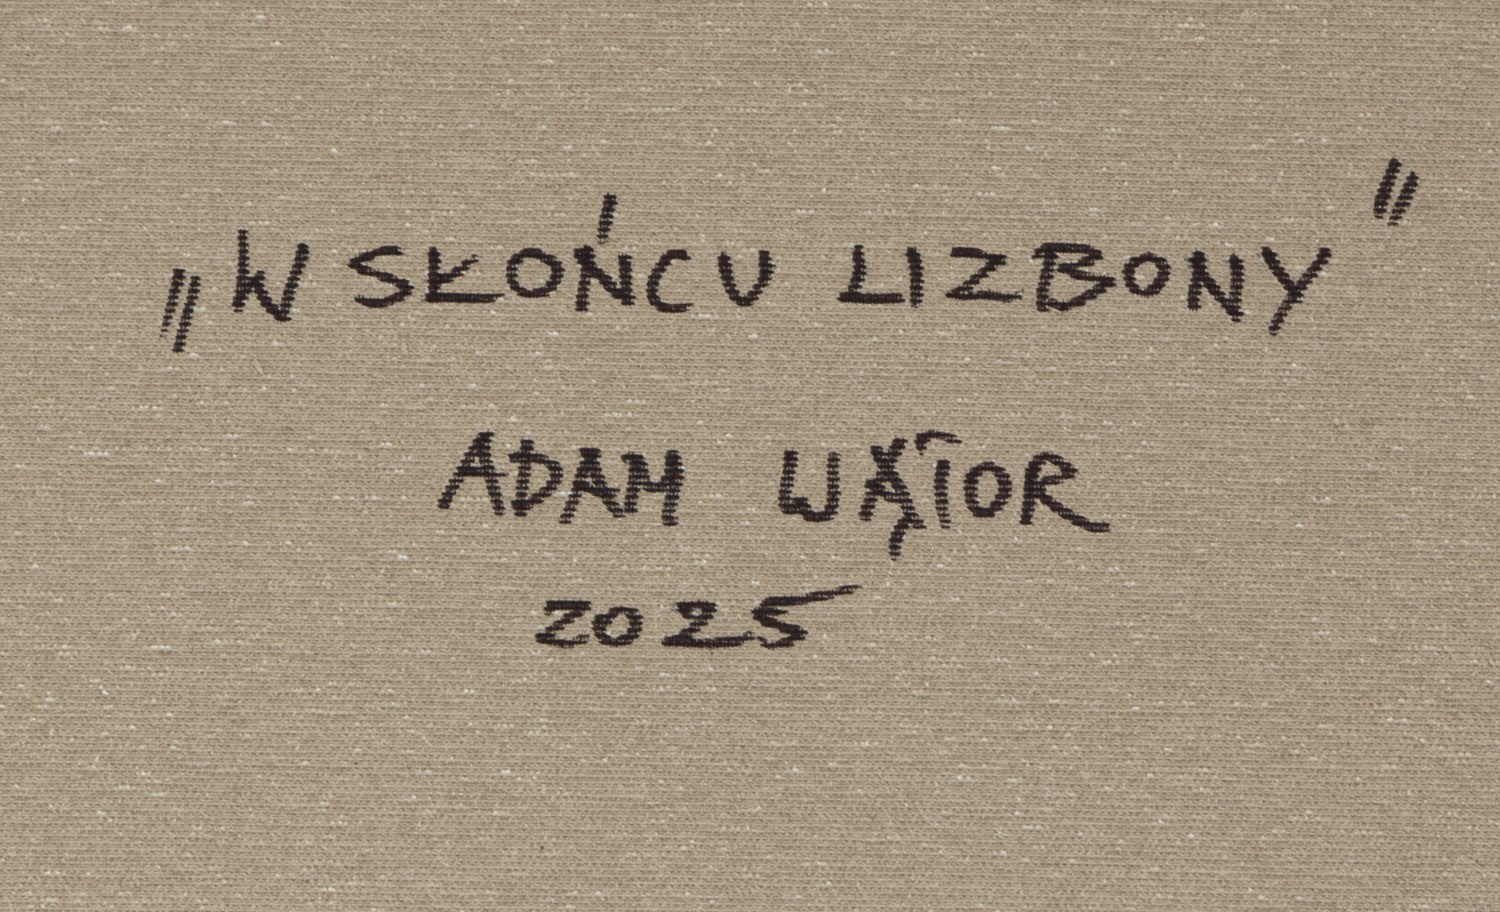 „W SŁOŃCU LIZBONY"
ADAM WĄTOR
2025